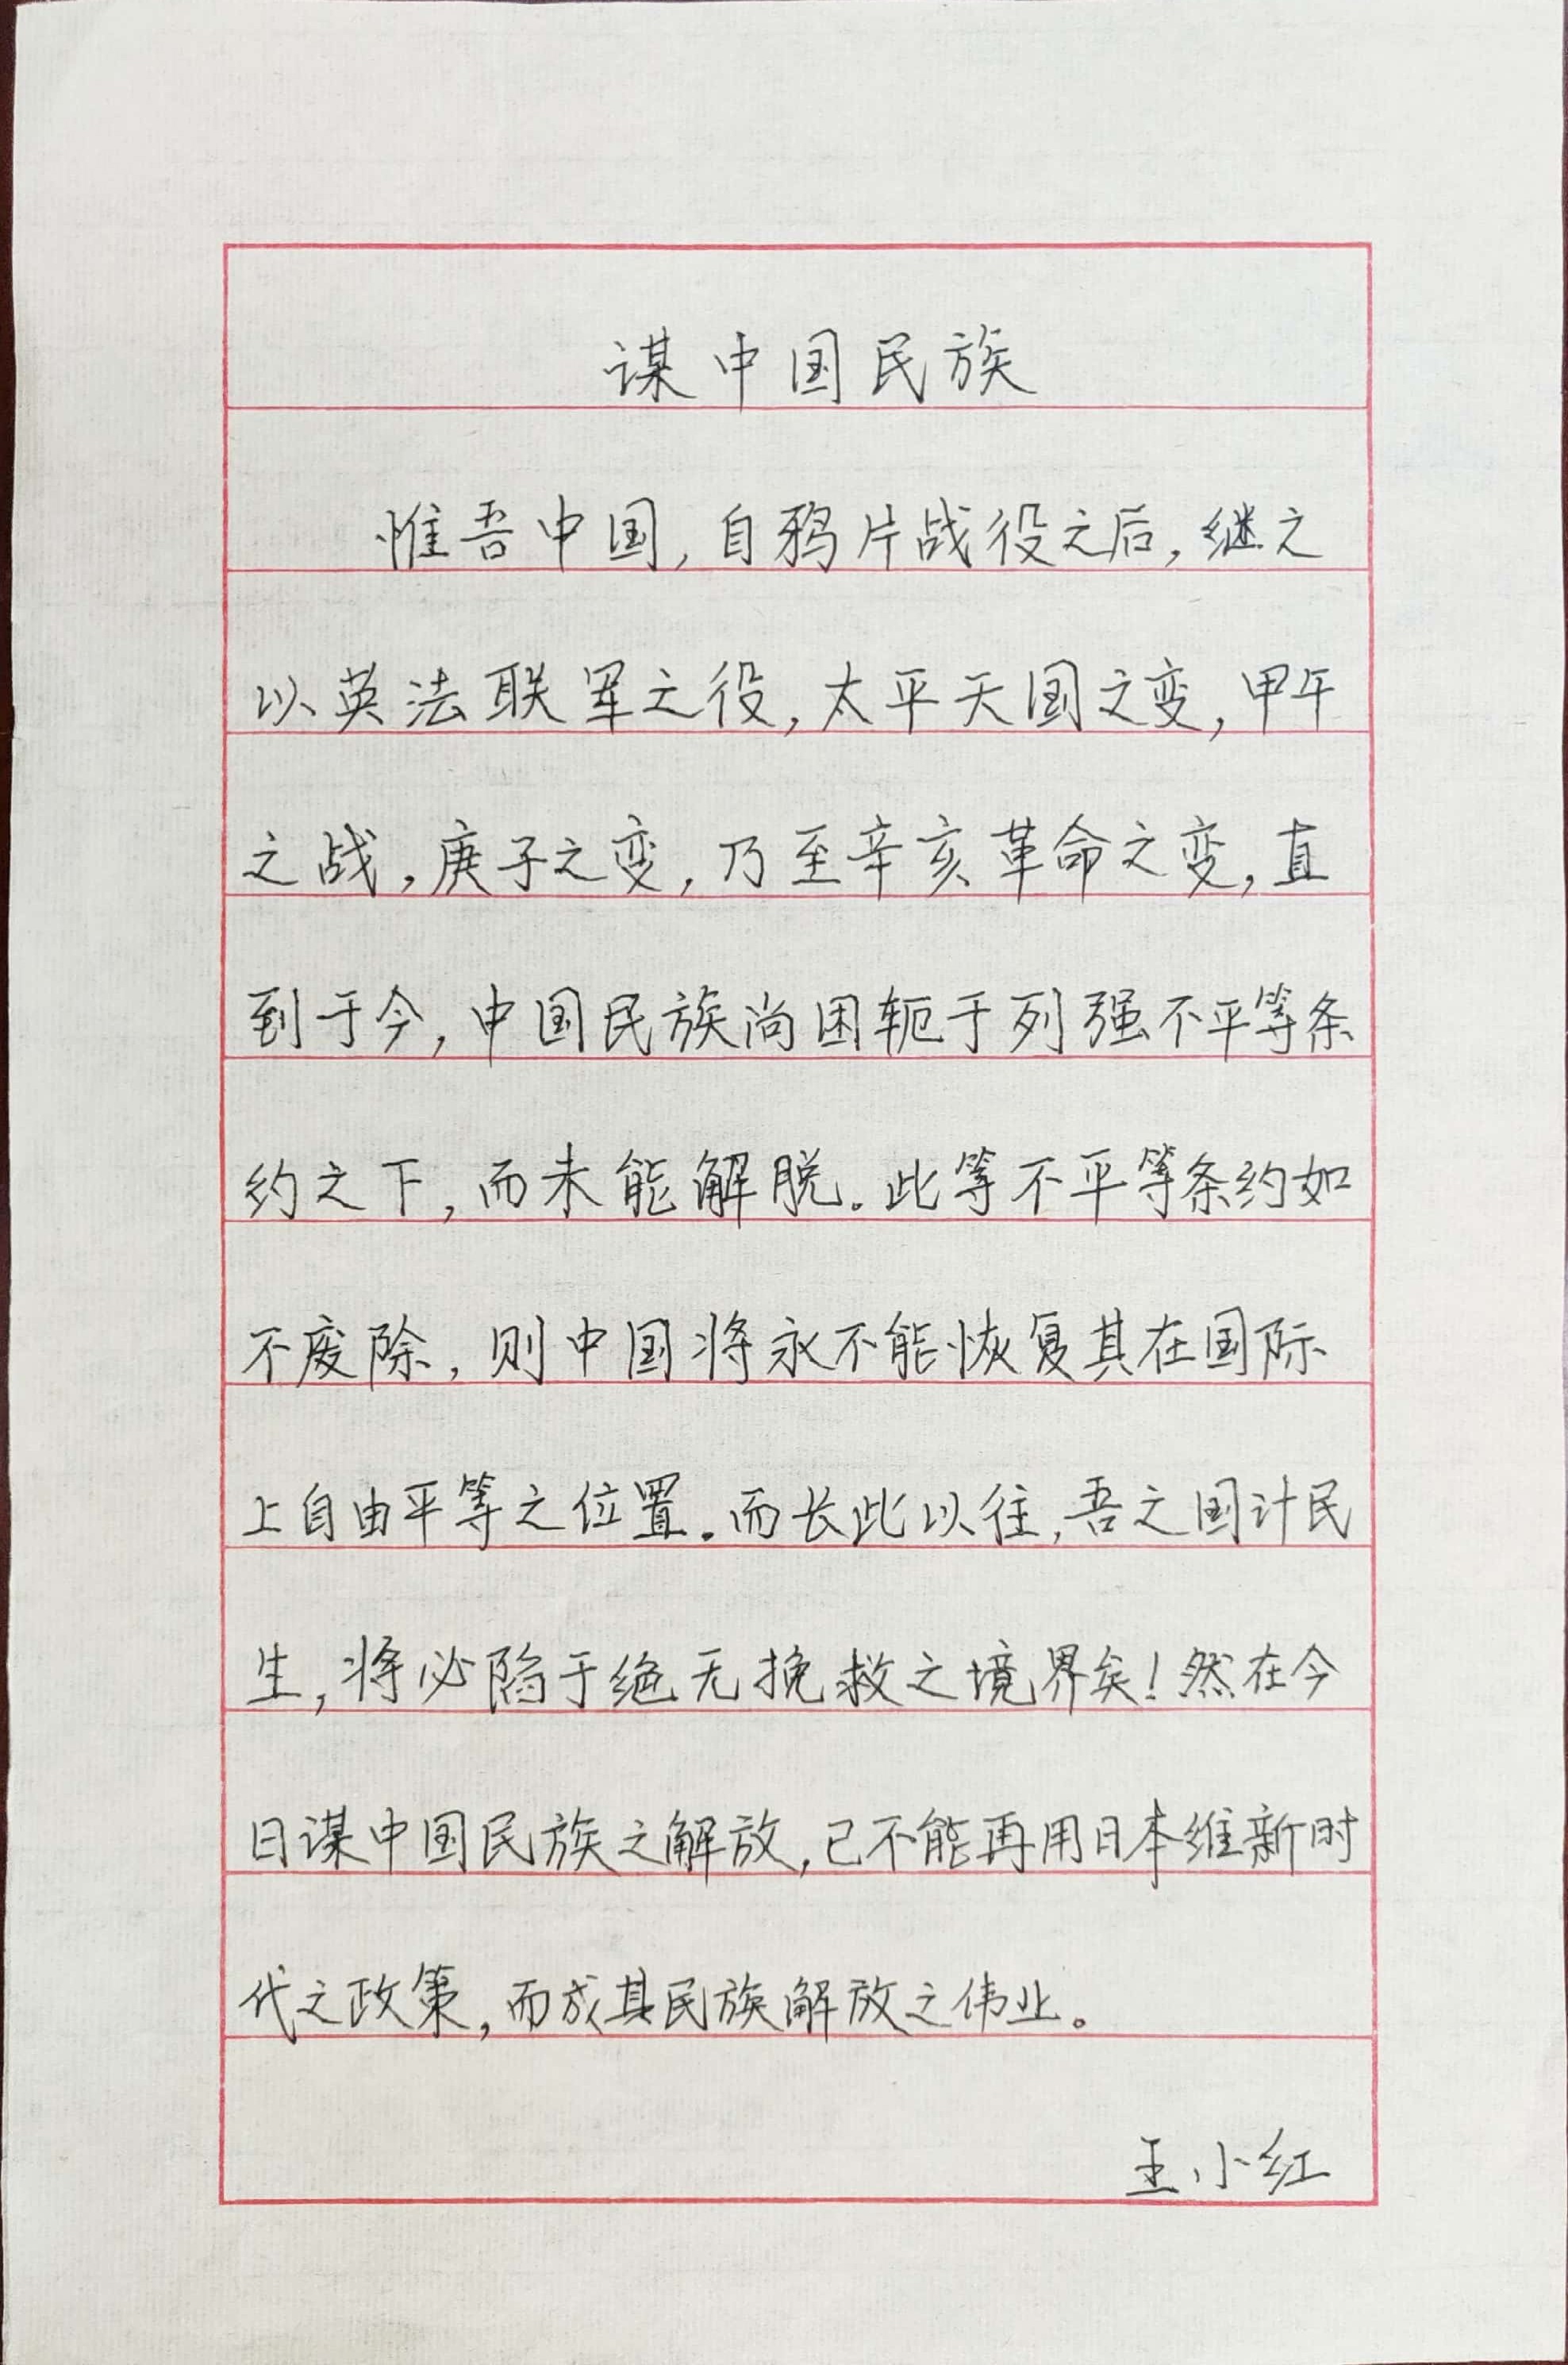 谋中国民族
惟吾中国,自鸦片战役之后,继之
以英法联军之役,太平天国之变,甲午
之战,庚子之变,乃至辛亥革命之变,直
到于今,中国民族尚困轭于列强不平等条
约之下,而未能解脱。此等不平等条约如
不废除,则中国将永不能恢复其在国际
上自由平等之位置。而长此以往,吾之国计民
生,将必陷于绝无挽救之境界矣!然在今
日谋中国民族之解放,已不能再用日本维新时
代之政策,而成其民族解放之伟业。
王小红